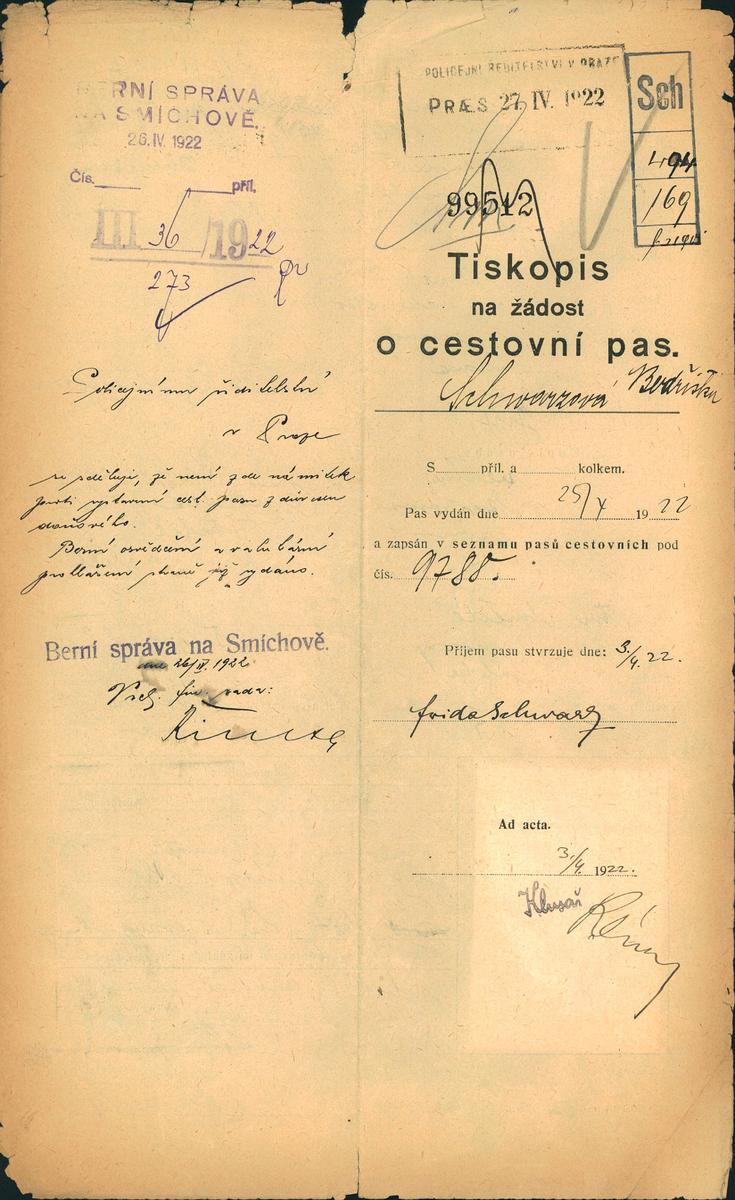 BERNÍ SPRÁVA
NA SMÍCHOVĚ.
26.IV.1922
Čís. příl.
III 36/1922
273
Policejnímu ředitelství
v Praze
se sděluje, že není zde námitek
proti vystavení cest. pasu z důvodu
daňového.
Berní osvědčení a valutární
prohlášení straně již vydáno.
Berní správa na Smíchově.
dne 26/IV. 1922
Vrch. fin. rada:
POLICEJNÍ ŘEDITELSTVÍ V PRAZE
PRÆS 27. IV. 1922
Sch
494
169
99512
Tiskopis
na žádost
o cestovní pas.
Schwarzová Bedřiška
S příl. a kolkem.
Pas vydán dne 1922
a zapsán v seznamu pasů cestovních pod
čís. 9788.
Příjem pasu stvrzuje dne: 3./4. 22.
Frida Schwarz
Ad acta.
3./4. 1922.